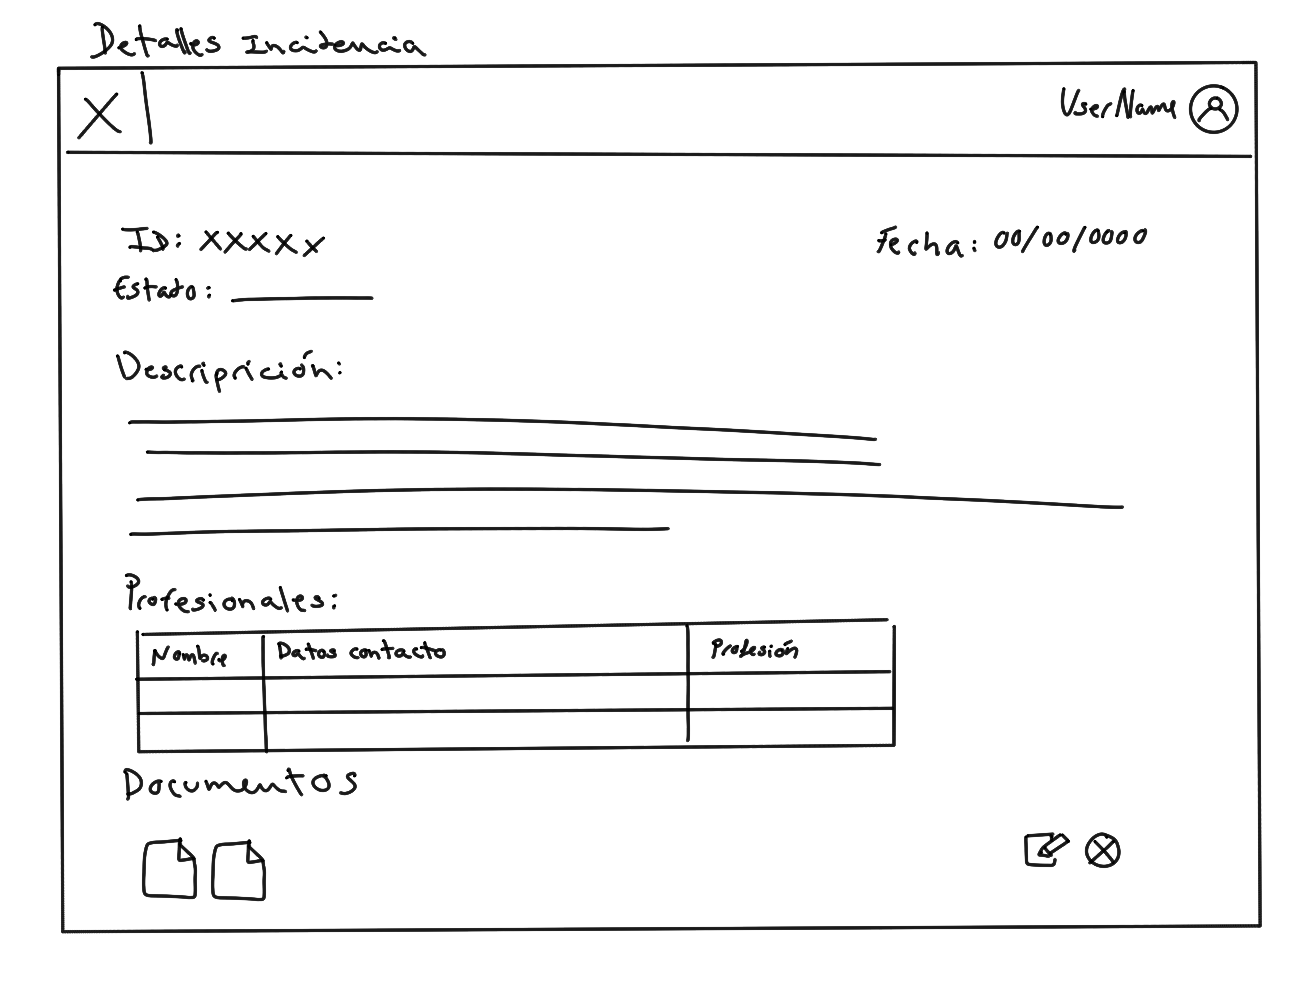 Detalles Incitencia
UserName
ID: XXXXX
Fecha: 00/00/0000
Estado:
Descriprición:
Profesionales:
Nombre Datos contacto Profesión
Documentos